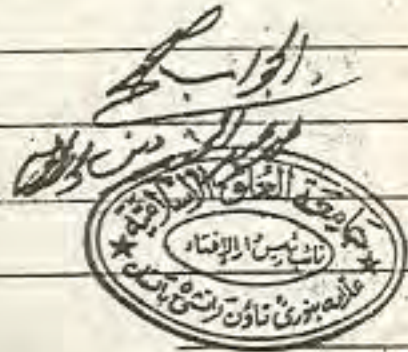 الجواب صحیح
جامعة العلوم الاسلامية
نائب رئيس دار الافتاء
علامه بنوری ٹاؤن کراتشی پاکستان